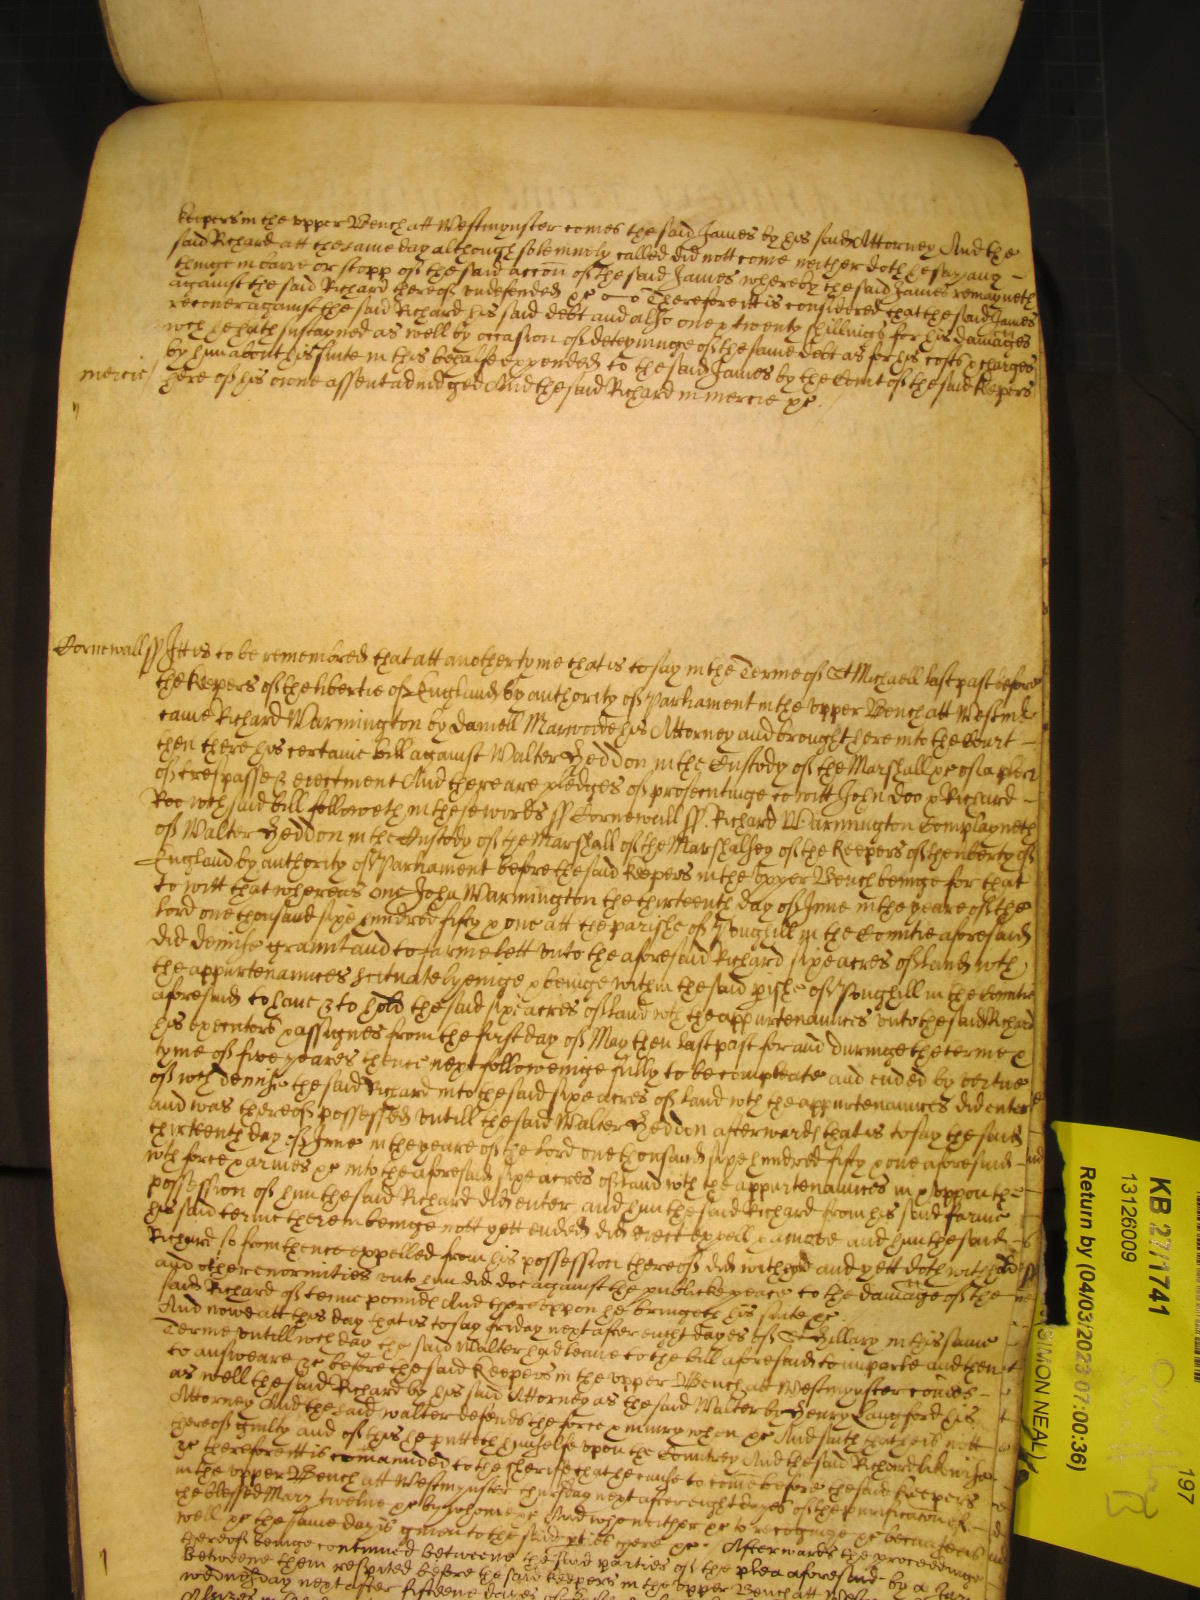 keepers in the upper Bench att Westmynster comes the said James by his said Attorney And the
said Richard att the same day although solemnely called did nott come neither doth he say any
thinge in barre or stopp of the said accon of the said James whereby the said James remayneth
against the said Richard thereof undefended &c Therefore itt is considered that the said James
recover against the said Richard his said debt and also one & twenty shillings for his damages
wch he hath sustayned as well by occasion of deteyninge of the same debt as for his costs & charges
by him about his suite in this behalfe expended to the said James by the Court of the said keepers
mercie here of his owne assent adiudged And the said Richard in mercie &c.
Cornewall ss Itt is to be remembred that att another tyme that is to say in the Terme of St Michaell last past before
the keepers of the libertie of England by authority of Parliament in the upper Bench att Westmr
came Richard Warmington by Daniell his Attorney and brought here into the Court
then there his certaine bill against Walter Heddon in the Custody of the Marshall &c of a plea
of trespasse & eiectment And there are pledges of prosecutinge to witt John Doo & Richard
Roo wch said bill followeth in these words ss Cornewall ss. Richard Warmington Complayneth
of Walter Heddon in the Custody of the Marshall of the Marshalsey of the keepers of the liberty of
England by authority of Parliament before the said keepers in the upper Bench beinge for that
to witt that whereas one John Warmington the thirteenth day of June in the yeare of the
lord one thousand sixe hundred fifty & one att the parishe of Poughill in the Countie aforesaid
did demise graunt and to farme lett unto the aforesaid Richard sixe acres of land with
the appurtenannces scituate lyeinge & beinge within the said pishe of Poughill in the Countie
aforesaid to have & to hold the said sixe acres of land wth the appurtenannces unto the said Richard
his executors & assignes from the first day of May then last past for and duringe the terme &
tyme of five yeares thence next followeinge fully to be compleate and ended by vertue
of wch demise the said Richard into the said sixe acres of land wth the appurtenannces did enter
and was thereof possessed untill the said Walter Heddon afterwards that is to say the said
thirteenth day of June in the yeare of the lord one thousand sixe hundred fifty & one aforesaid
wth force & armes &c into the aforesaid sixe acres of land wth the appurtenannces in & uppon the
possession of him the said Richard did enter and him the said Richard from his said farme
his said terme therein beinge nott yett ended did eiect expell & amove and him the said
Richard so from thence expelled from his possession thereof did withhold and yett doth withhold
and other enormities unto him did doe against the publicke peace to the damage of the
said Richard of tenne pounds And thereuppon he bringeth his suite &c
And nowe att this day that is to say friday next after eight dayes of St Hillary in this same
Terme untill wch day the said Walter had leave to the bill aforesaid to imparle and then
to answeare &c before the said keepers in the upper Bench att Westmynster comes
as well the said Richard by his said Attorney as the said Walter by Henry Langford his
Attorney And the said Walter defends the force & iniury when &c And saith that he is nott
thereof guilty and of this he putteth himselfe upon the Countrey And the said Richard likewise
&c therefore itt is comaunded to the sherife that he cause to come before the said keepers
in the upper Bench att Westmynster thursday next after eight dayes of the purificacon of
the blessed Mary twelve &c by whome &c And who neither &c to recognize &c because as
well &c the same day is given to the said pties there &c. Afterwards the proceedinge
thereof beinge continued betweene the said parties of the plea aforesaid by a Jury
betweene them respited before the said keepers in the upper Bench att Westmr
wednesday next after fifteene dayes of
KB 27/1741
13126009
Return by (04/03/2023 07:00:36)
(SIMON NEAL)
197